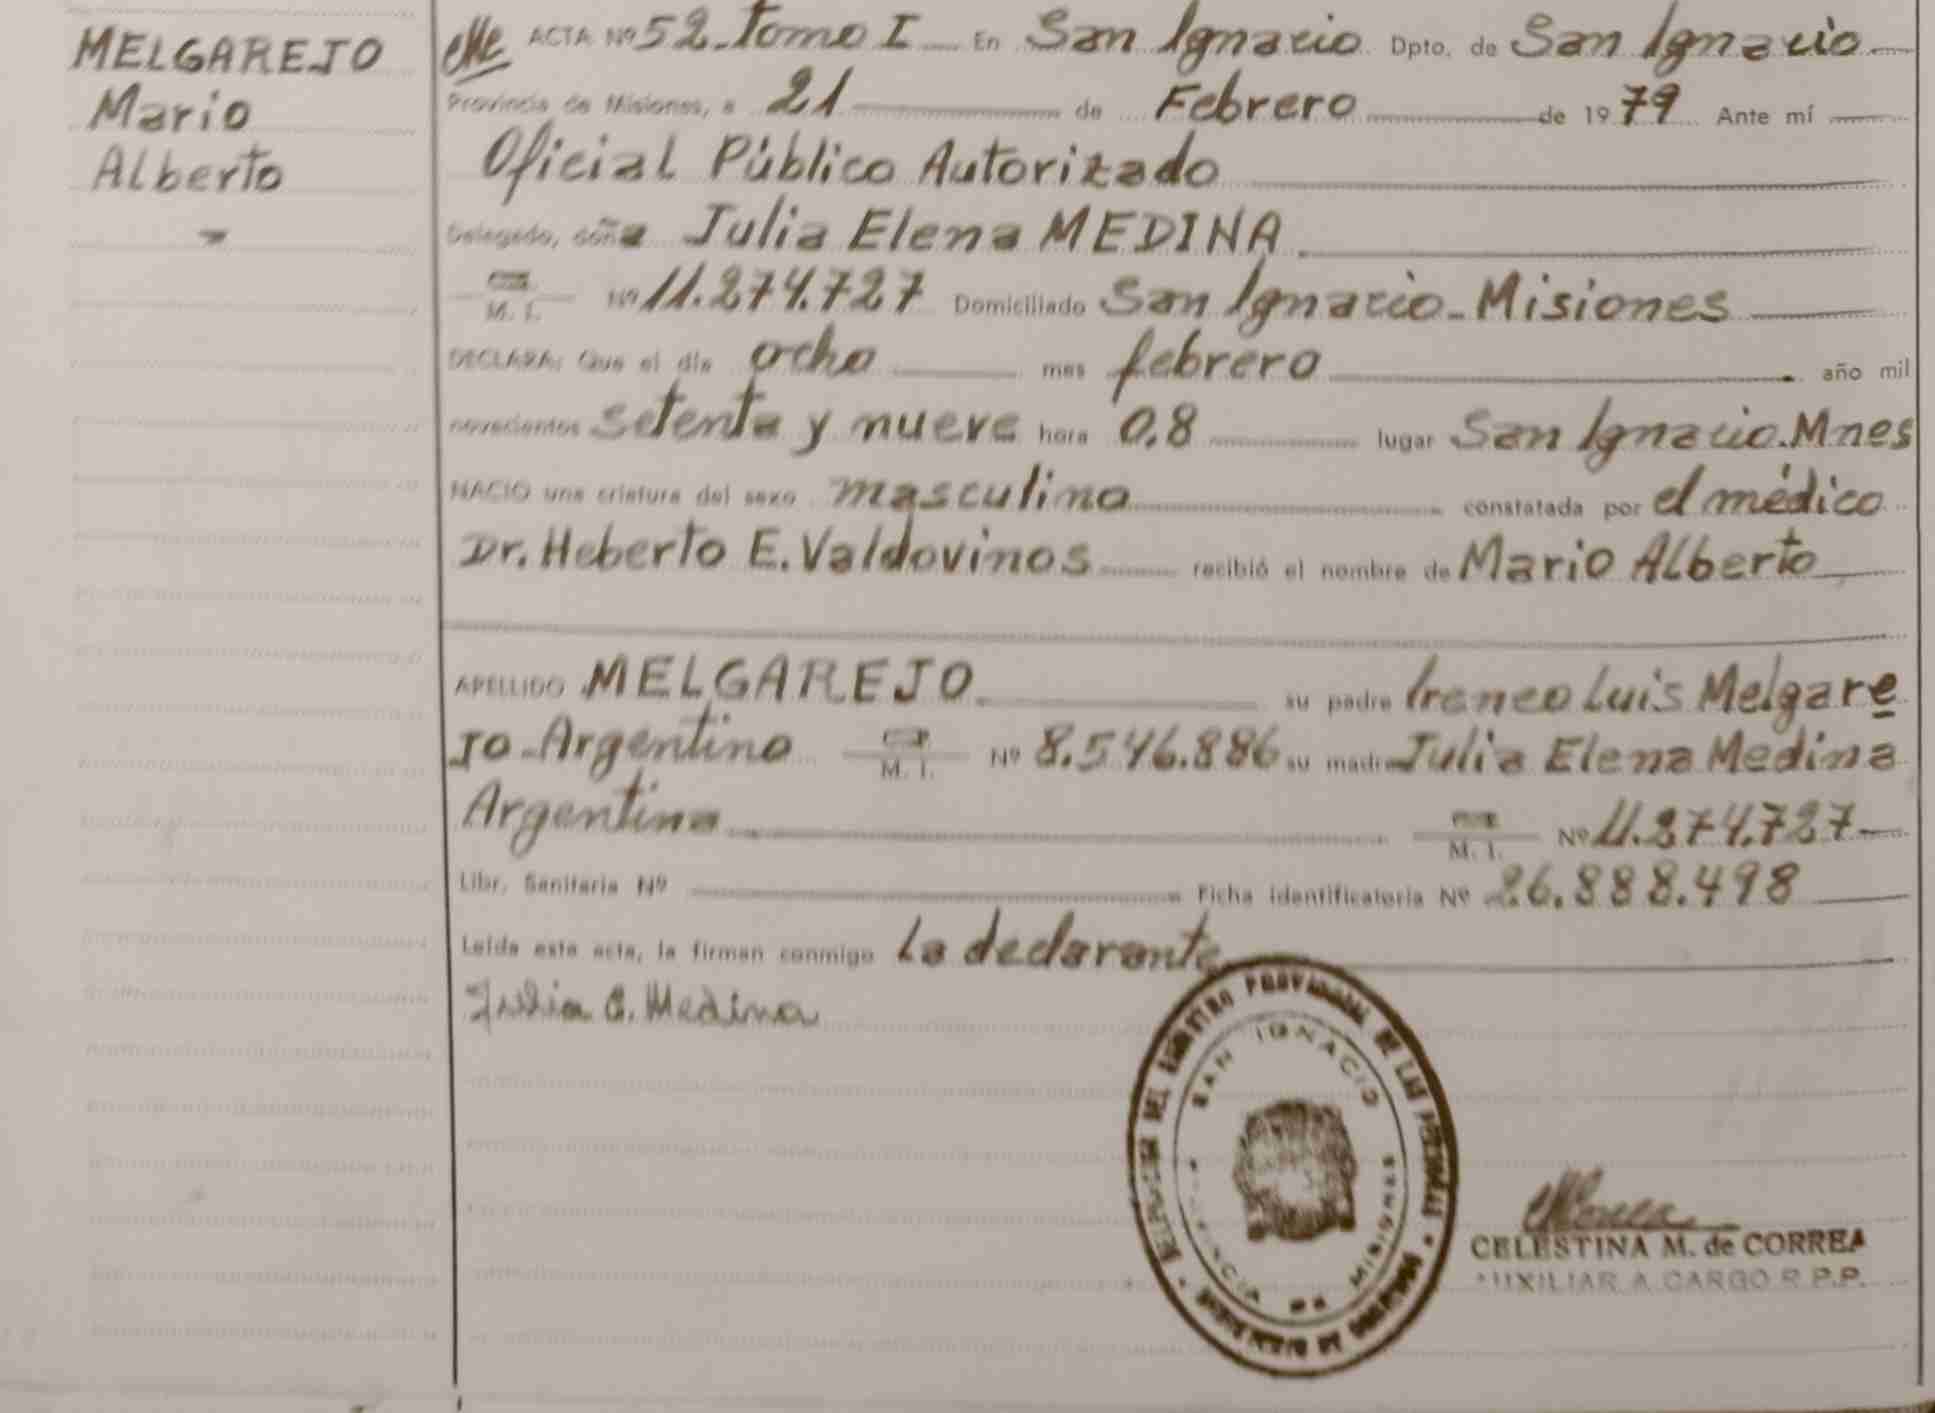 MELGAREJO
Mario
Alberto
ACTA Nº 52 - Tomo I En San Ignacio Dpto. de San Ignacio
Provincia de Misiones, a 21 de Febrero de 1979 Ante mí
Oficial Público Autorizado
Delegado, doña Julia Elena MEDINA
M. I. Nº 11.274.727 Domiciliado San Ignacio - Misiones
DECLARA: Que el día ocho mes febrero año mil
novecientos setenta y nueve hora 0.8 lugar San Ignacio. Mnes
NACIO una criatura del sexo masculino constatada por el médico
Dr. Heberto E. Valdovinos recibió el nombre de Mario Alberto
APELLIDO MELGAREJO su padre Ireneo Luis Melgare
Jo - Argentino M. I. Nº 8.546.886 su madre Julia Elena Medina
Argentina M. I. Nº 11.274.727
Libr. Sanitaria Nº Ficha identificatoria Nº 26.888.498
Leída esta acta, la firman conmigo La declarante
Julia E. Medina
REGISTRO PROVINCIAL DE LAS PERSONAS
SAN IGNACIO
PROVINCIA DE MISIONES
CELESTINA M. de CORREA
AUXILIAR A CARGO R.P.P.